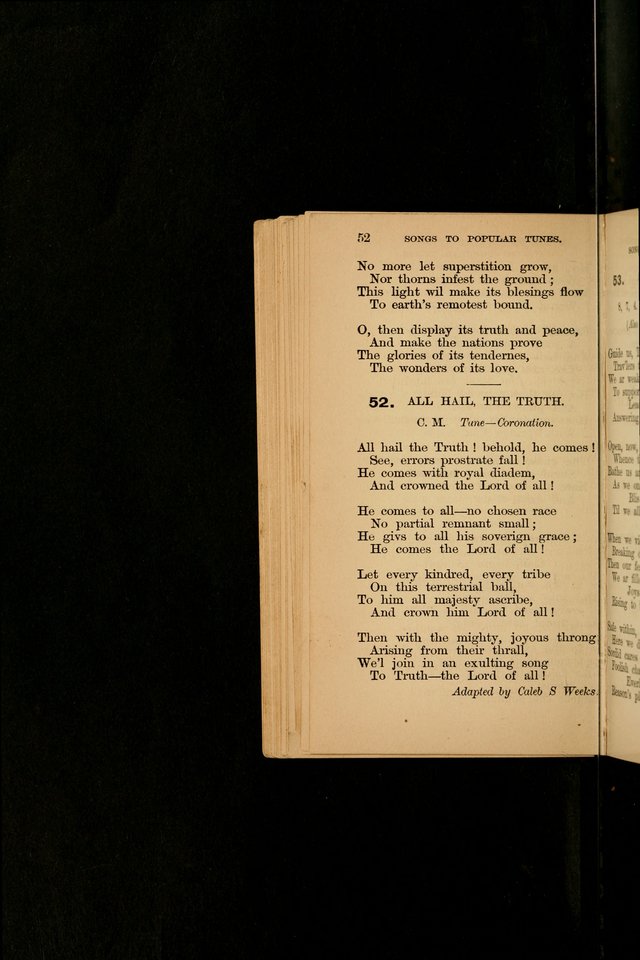 52 SONGS TO POPULAR TUNES.
No more let superstition grow,
Nor thorns infest the ground;
This light wil make its blesings flow
To earth's remotest bound.
O, then display its truth and peace,
And make the nations prove
The glories of its tendernes,
The wonders of its love.
52. ALL HAIL, THE TRUTH.
C. M. Tune—Coronation.
All hail the Truth! behold, he comes!
See, errors prostrate fall!
He comes with royal diadem,
And crowned the Lord of all!
He comes to all—no chosen race
No partial remnant small;
He givs to all his soverign grace;
He comes the Lord of all!
Let every kindred, every tribe
On this terrestrial ball,
To him all majesty ascribe,
And crown him Lord of all!
Then with the mighty, joyous throng
Arising from their thrall,
We'l join in an exulting song
To Truth—the Lord of all!
Adapted by Caleb S Weeks.
53.
8, 7, 4.
Guide us,
We ar weak
To
Answering
Open, now,
Whence
As we
Til we all
When we
Breaking
Then our
We ar
Rising to
Safe within,
Here we
Sordid cares
Foolish
Reason's